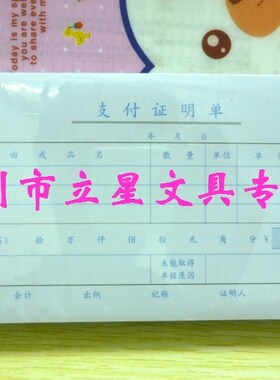 with m
to share eve
you are welc
oday is my sp
支付证明单
年 月 日
由 或 品 名 数 量 单位 单
市立星文具专
拾 万 仟 佰 拾 元 角 分 ￥
未能取得
单据原因
会计 出纳 记帐 证明人